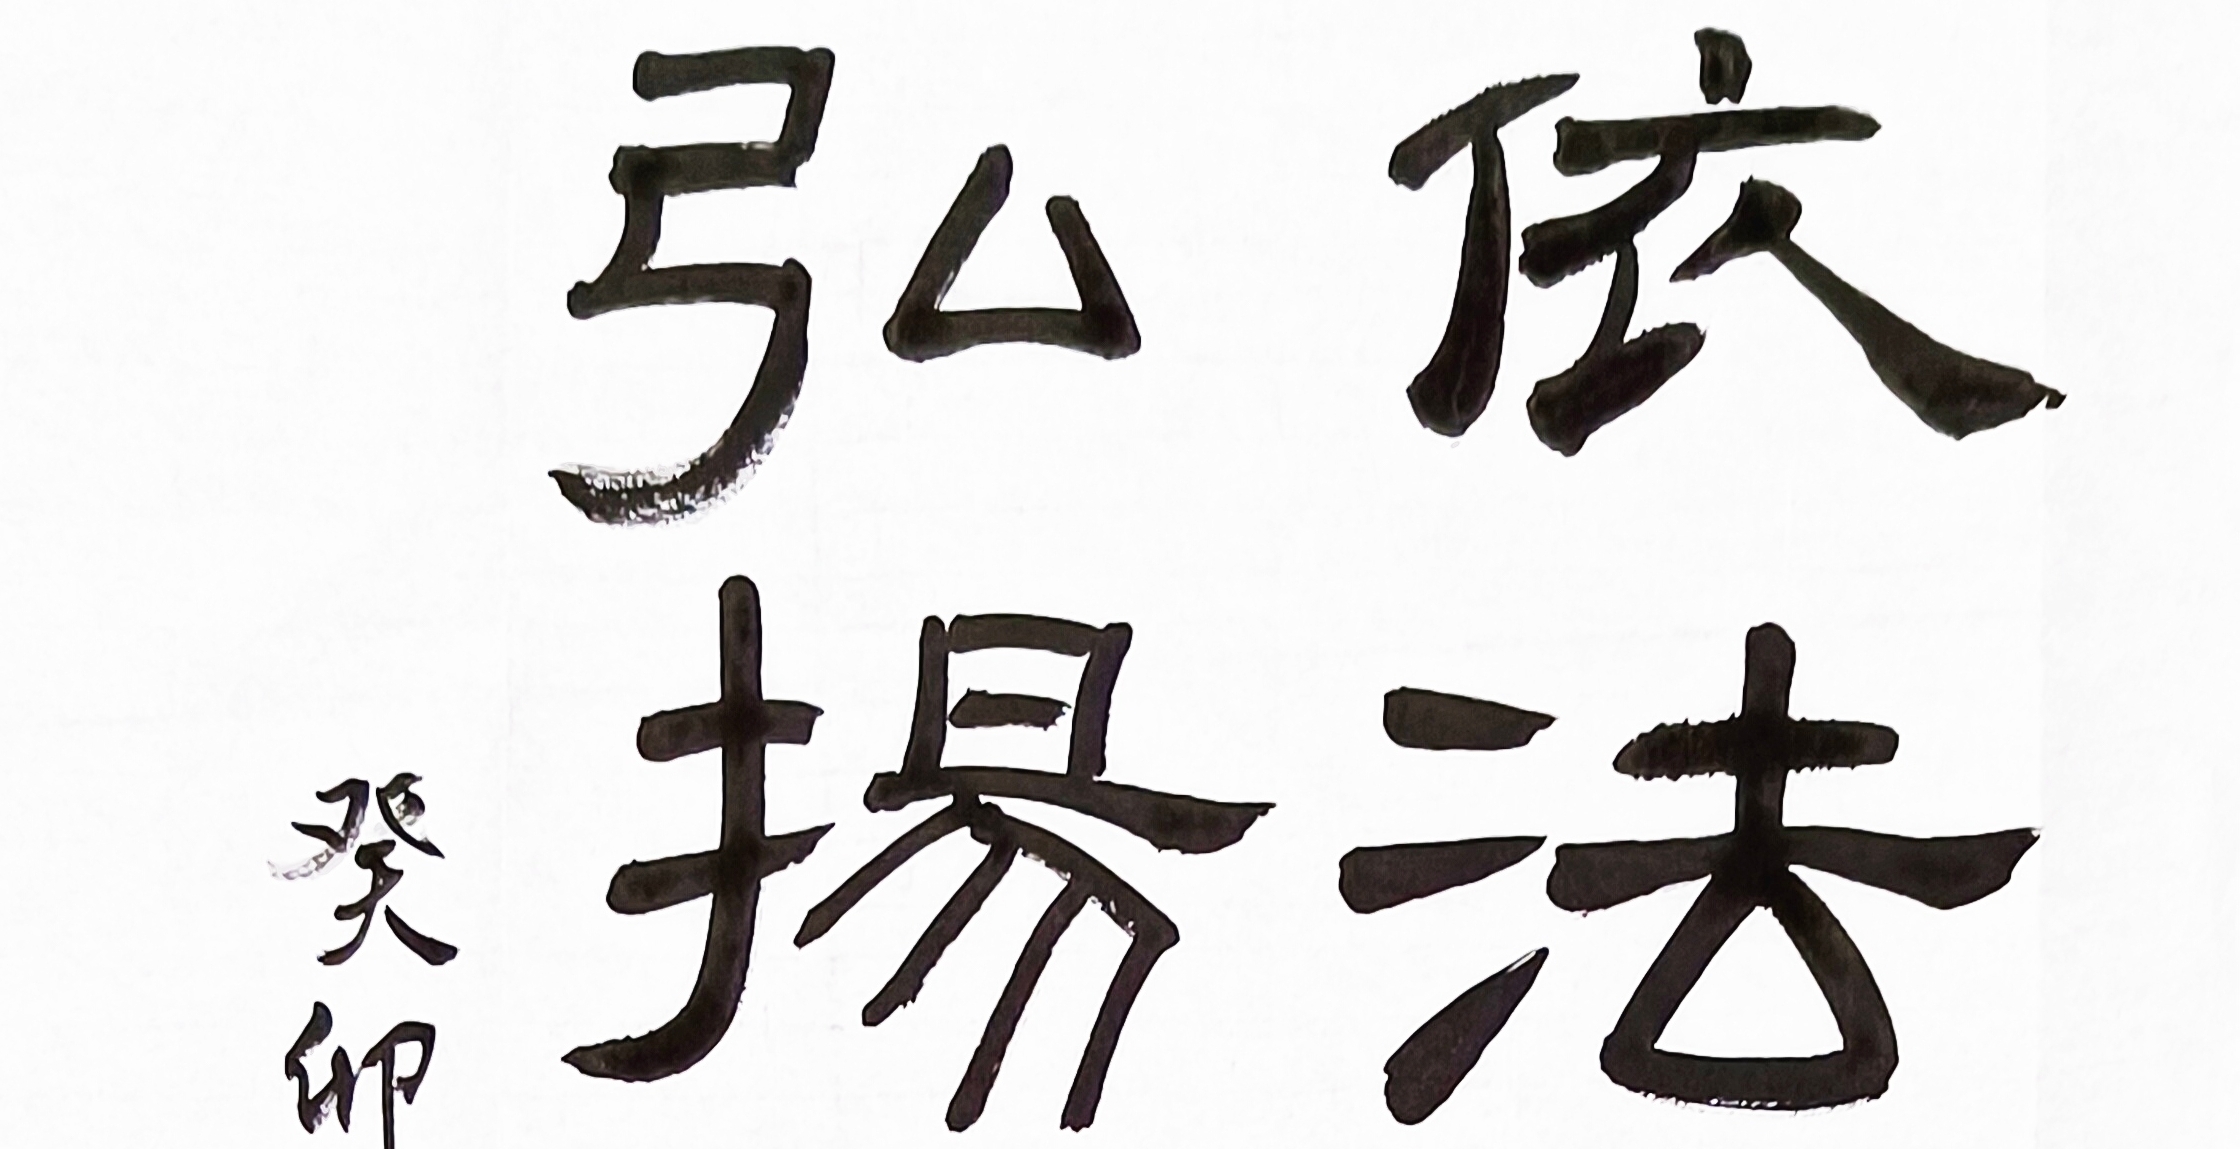 依法
弘揚
癸卯